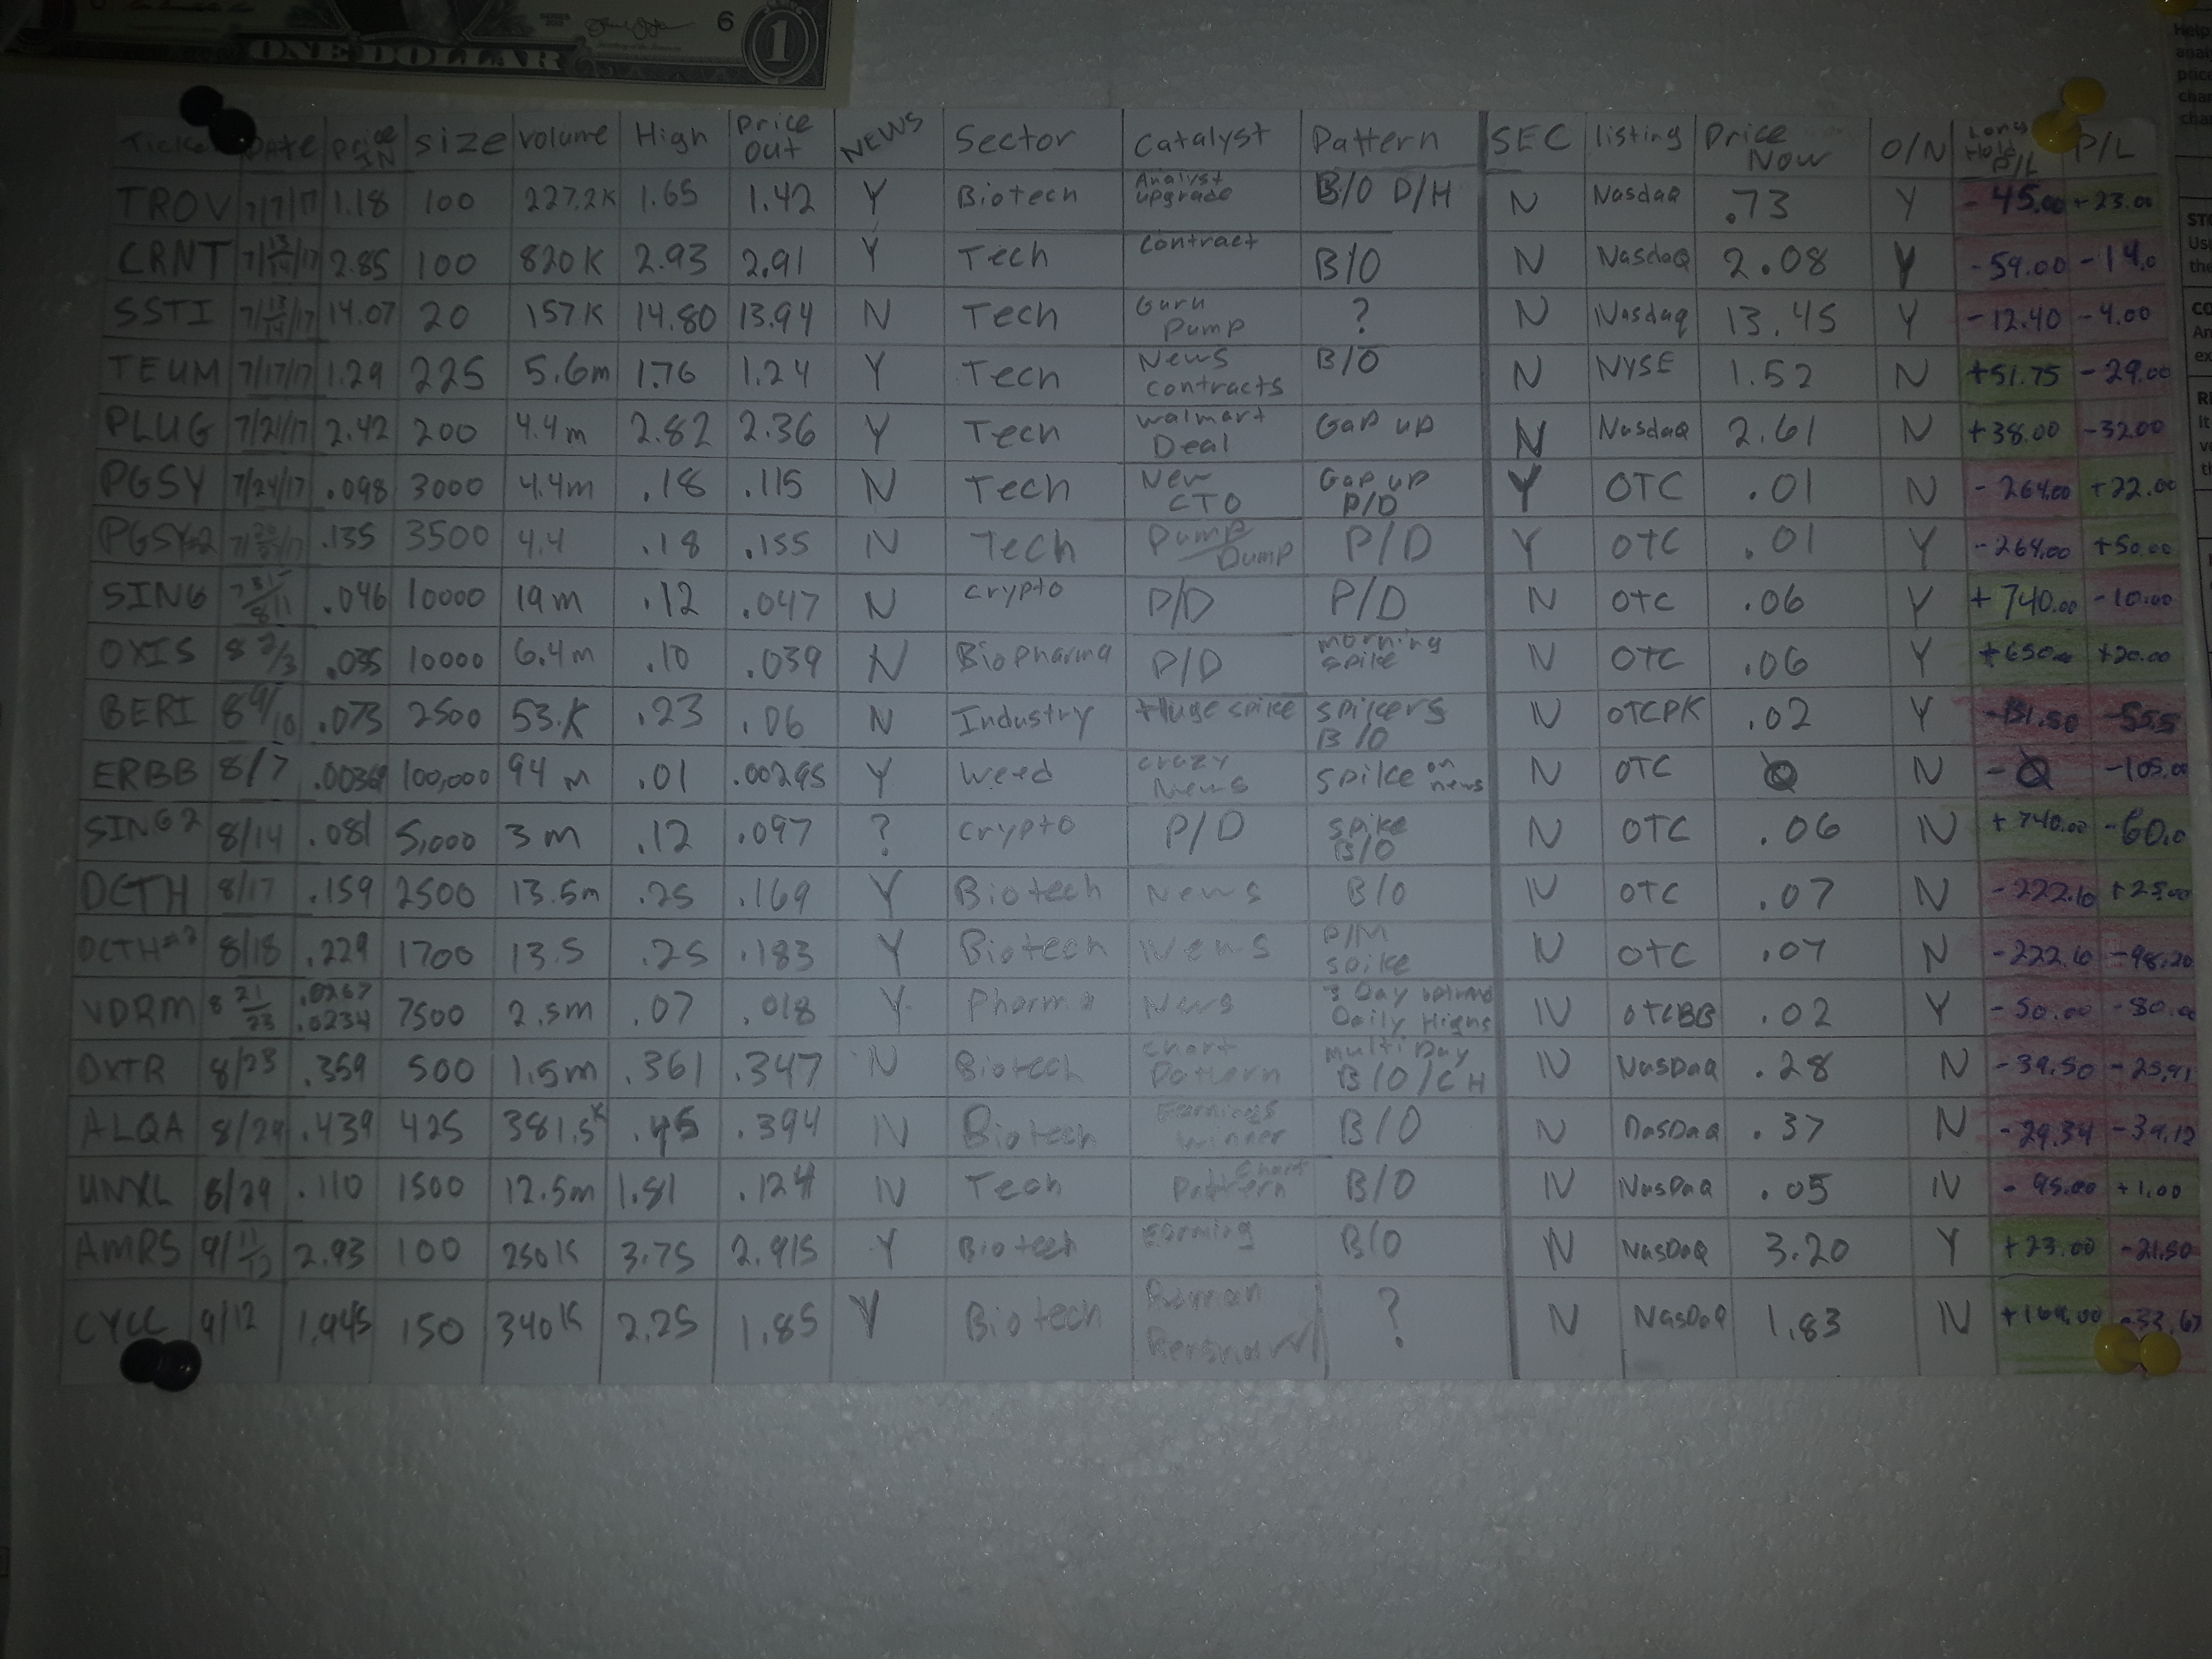 ONE DOLLAR
6
1
Ticker DATE Price IN size volume High Price Out NEWS Sector Catalyst Pattern SEC listing Price Now O/N Long Hold P/L P/L
TROV 7/7/17 1.18 100 227.2K 1.65 1.42 Y Biotech Analyst upgrade B/O D/H N Nasdaq .73 Y -45.00 +23.00
CRNT 7/13/14/17 2.85 100 820K 2.93 2.91 Y Tech Contract B/O N Nasdaq 2.08 Y -59.00 -14.0
SSTI 7/13/14/17 14.07 20 157K 14.80 13.94 N Tech Guru Pump ? N Nasdaq 13.45 Y -12.40 -4.00
TEUM 7/17/17 1.29 225 5.6m 1.76 1.24 Y Tech News Contracts B/O N NYSE 1.52 N +51.75 -29.00
PLUG 7/21/17 2.42 200 4.4m 2.82 2.36 Y Tech Walmart Deal Gap up N Nasdaq 2.61 N +38.00 -32.00
PGSY 7/24/17 .098 3000 4.4m .18 .115 N Tech New CTO Gap up P/D Y OTC .01 N -264.00 +22.00
PGSY-2 .135 3500 4.4 .18 .155 N Tech Pump/Dump P/D Y OTC .01 Y -264.00 +50.00
SING 7 31/8/1 .046 10000 19m .12 .047 N Crypto P/D P/D N OTC .06 Y +740.00 -10.00
OXIS 8 2/3 .035 10000 6.4m .10 .039 N BioPharma P/D morning spike N OTC .06 Y +650 +20.00
BERI 8 9/10 .073 2500 53.K .23 .06 N Industry Huge spike spikers B/O N OTCPK .02 Y -131.50 -55.5
ERBB 8/7 .0036 100,000 94m .01 .00295 Y Weed crazy News Spike on news N OTC N - -105.0
SING 2 8/14 .081 5,000 3m .12 .097 ? Crypto P/D Spike B/O N OTC .06 N +740.00 -60.0
DCTH 8/17 .159 2500 13.5m .25 .169 Y Biotech News B/O N OTC .07 N -222.10 +25.00
DCTH#2 8/18 .229 1700 13.5 .25 .183 Y Biotech News P/M Spike N OTC .07 N -222.10 -98.20
VDRM 8 21/23 .0267 .0234 7500 2.5m .07 .018 Y Pharma News 3 Day Daily Highs N OTCBB .02 Y -50.00 -80.00
DXTR 8/23 .359 500 1.5m .361 .347 N Biotech Chart Pattern Multi Day B/O/CH N NasDaq .28 N -39.50 -25.91
ALQA 8/29 .439 425 381.5K .45 .394 N Biotech Earnings winner B/O N NasDaq .37 N -29.34 -39.12
UNXL 8/29 .110 1500 12.5m 1.81 .124 N Tech Chart Pattern B/O N NasDaq .05 N -95.00 +1.00
AMRS 9/11/12 2.93 100 250K 3.75 2.915 Y Biotech Earning B/O N NasDaq 3.20 Y +23.00 -21.50
CYCC 9/12 1.945 150 340K 2.25 1.85 Y Biotech Roman ? N NasDaq 1.83 N +169.00 -33.67